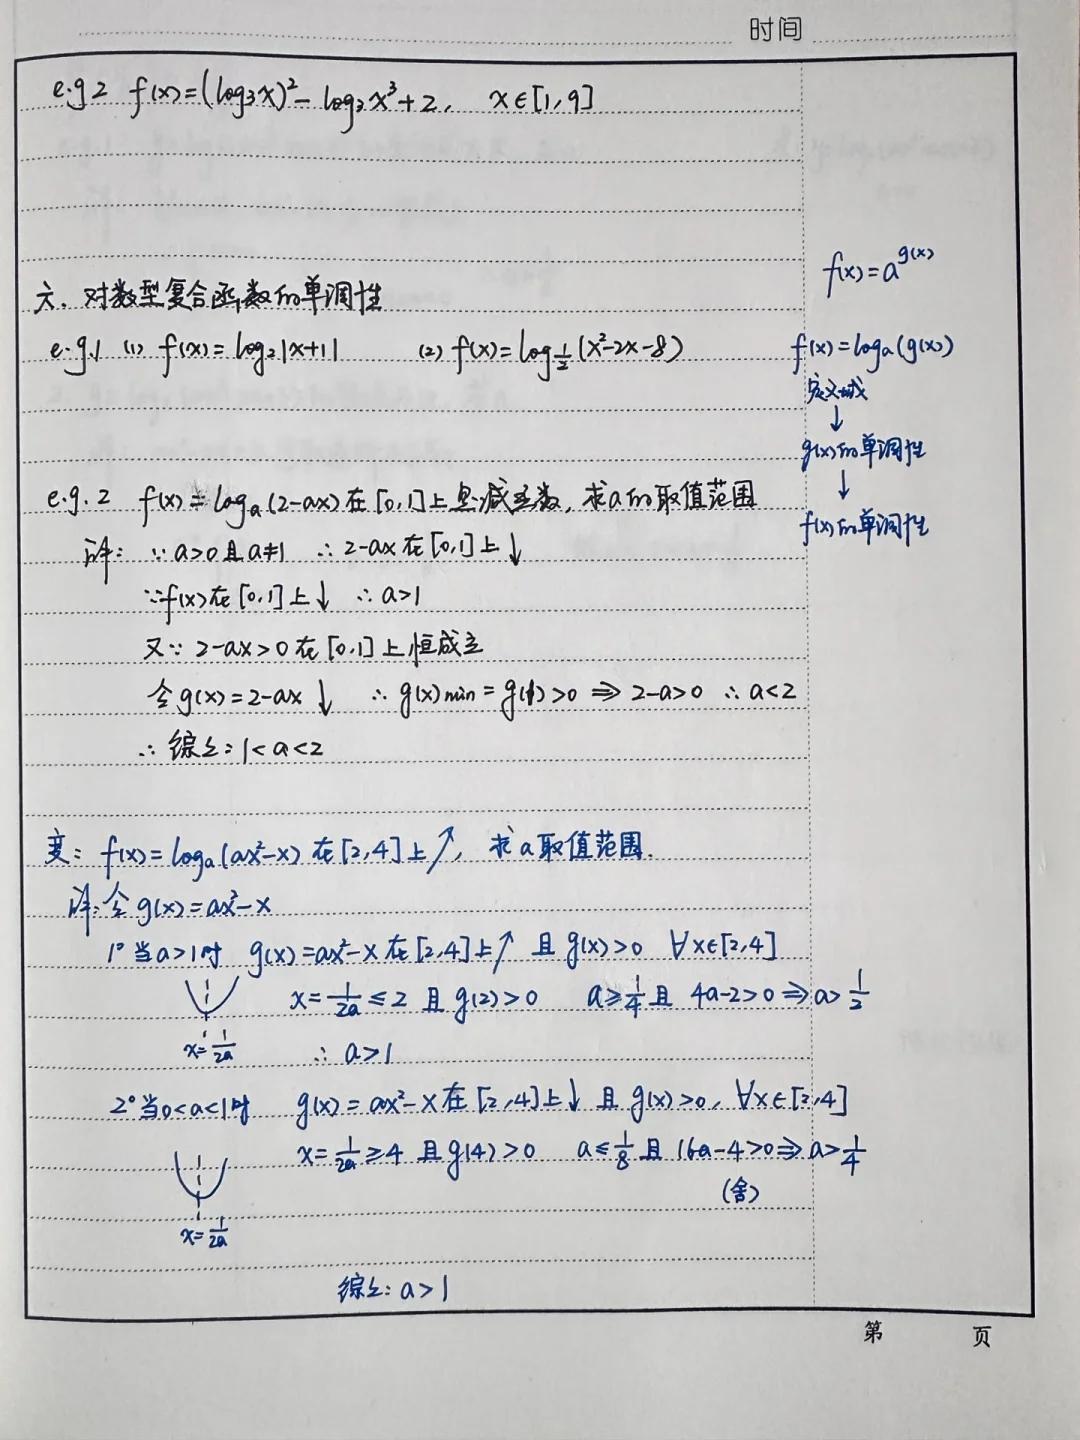 时间
e.g 2 f(x)=(log₃x)²-log₃x³+2, x∈[1,9]
六. 对数型复合函数的单调性
e.g.1 (1) f(x)=log₂|x+1| (2) f(x)=log_{1/2}(x²-2x-8)
e.g.2 f(x)=logₐ(2-ax)在[0,1]上是减函数,求a的取值范围
详: ∵a>0且a≠1 ∴2-ax在[0,1]上↓
∵f(x)在[0,1]上↓ ∴a>1
又∵2-ax>0在[0,1]上恒成立
令g(x)=2-ax↓ ∴g(x)min=g(1)>0⇒2-a>0 ∴a<2
∴综上:1<a<2
变: f(x)=logₐ(ax²-x)在[2,4]上↗, 求a取值范围.
详:令g(x)=ax²-x
1°当a>1时 g(x)=ax²-x在[2,4]上↗ 且g(x)>0 ∀x∈[2,4]
x=1/2a≤2 且g(2)>0 a≥1/4且 4a-2>0⇒a>1/2
x=1/2a
∴a>1
2°当0<a<1时 g(x)=ax²-x在[2,4]上↓ 且g(x)>0, ∀x∈[2,4]
x=1/2a≥4 且g(4)>0 a≤1/8且 16a-4>0⇒a>1/4
(舍)
x=1/2a
综上: a>1
f(x)=a^{g(x)}
f(x)=logₐ(g(x))
定义域
↓
g(x)的单调性
↓
f(x)的单调性
第 页